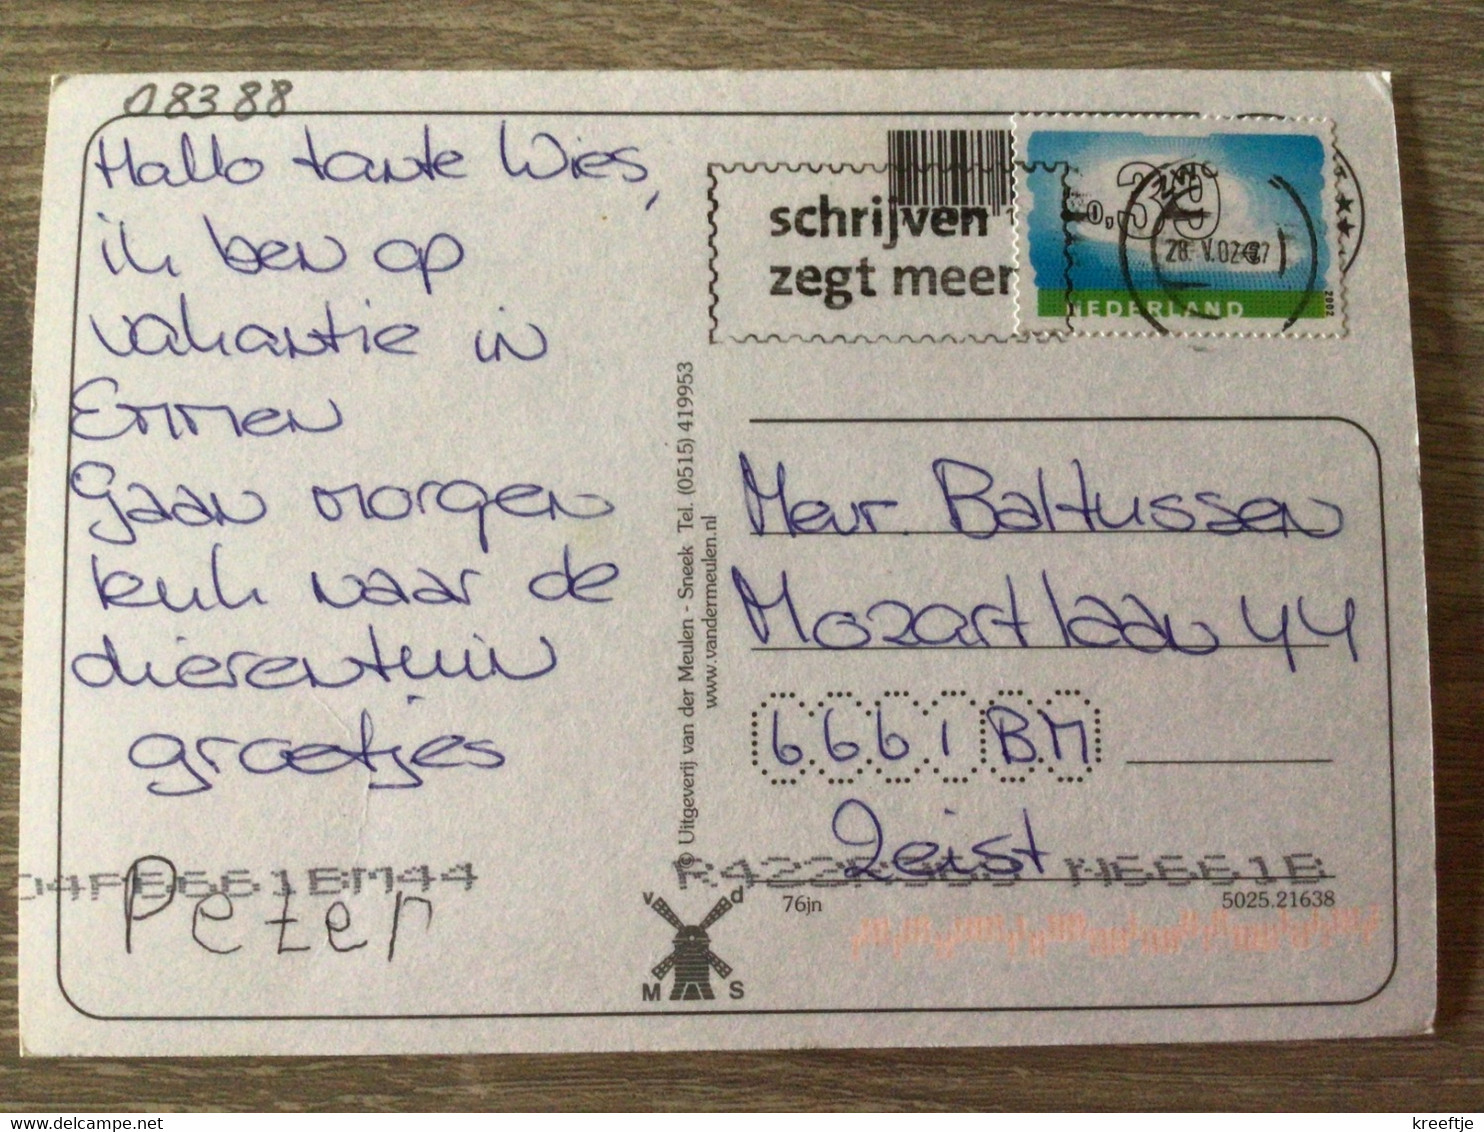 08388
Hallo tante Wies,
ik ben op
vakantie in
Emmen
Gaan morgen
leuk naar de
dierentuin
groetjes
Peter
04FB6661BM44
© Uitgeverij van der Meulen - Sneek Tel. (0515) 419953
www.vandermeulen.nl
schrijven
zegt meer
0,39
28. V.02
NEDERLAND
2002
Mevr. Baltussen
Mozartlaan 44
6661 BM
Zeist
N6661B
76jn
5025.21638
v d
M S
kreeftje